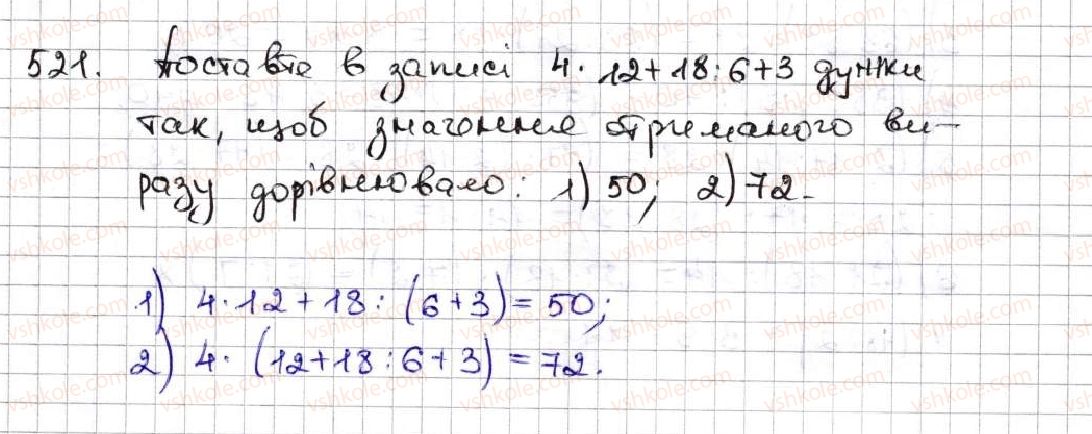 521. Поставте в записі 4 · 12 + 18 : 6 + 3 дужки
так, щоб значення отриманого ви-
разу дорівнювало: 1) 50; 2) 72.
1) 4 · 12 + 18 : (6 + 3) = 50;
2) 4 · (12 + 18 : 6 + 3) = 72.